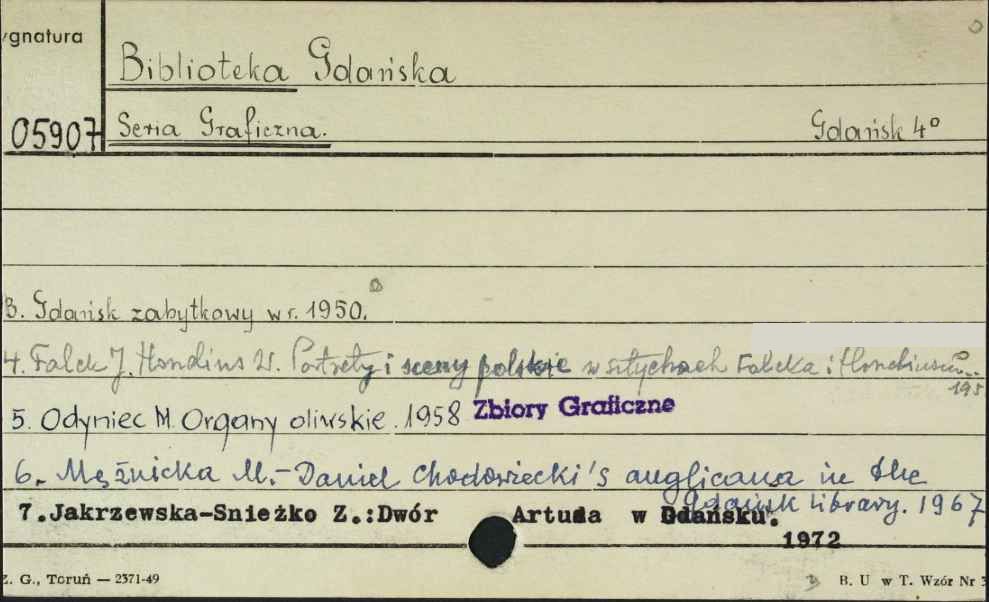 ygnatura
Biblioteka Gdańska
05907 Seria Graficzna. Gdańsk 4°
3. Gdańsk zabytkowy w r. 1950.
4. Falck J. Hondius W. Portrety i sceny polskie w sztychach Falcka i Hondiusza.
195
5. Odyniec M. Organy oliwskie. 1958 Zbiory Graficzne
6. Mężnicka M. - Daniel Chodowiecki's anglicana in the
Gdańsk Library. 1967
7.Jakrzewska-Snieżko Z.:Dwór Artusa w Gdańsku.
1972
Z. G., Toruń — 2371-49 B. U w T. Wzór Nr 3